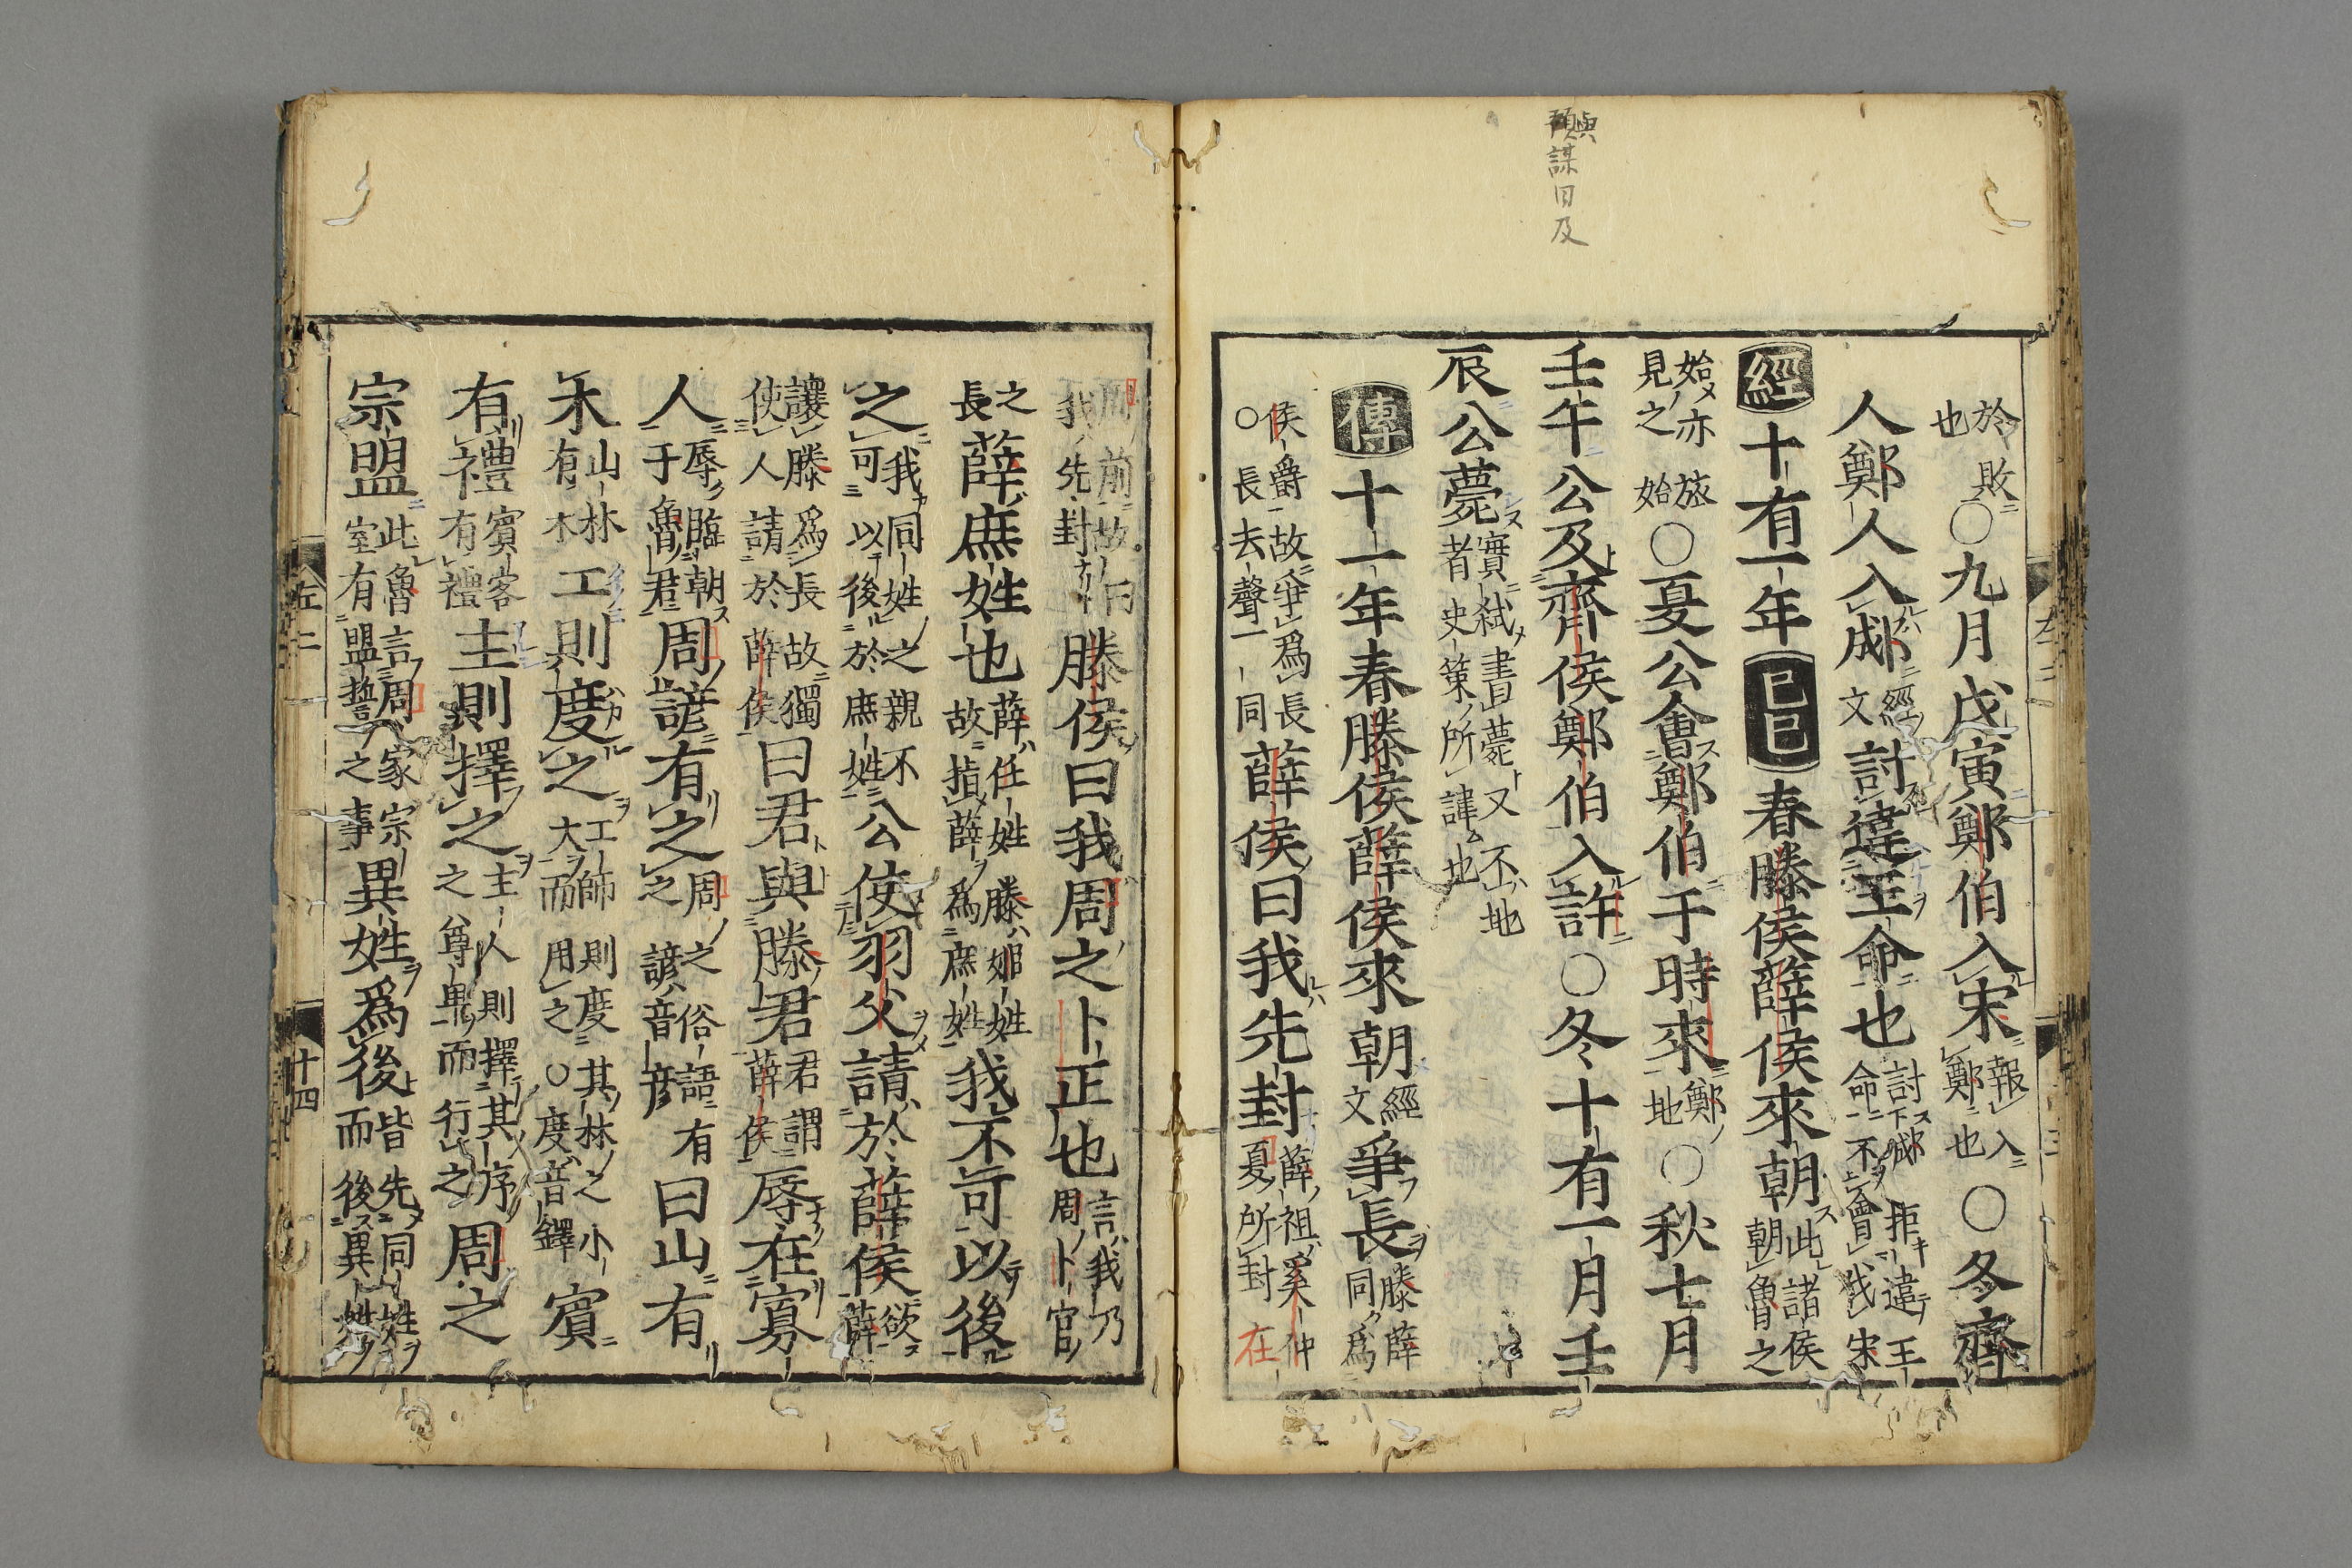 與謀曰及
於敗也○九月戊寅鄭伯入宋報入鄭也○冬齊
人鄭人入郕經文討違王命也討郕拒違王命不會伐宋
經十有一年己巳春滕侯薛侯來朝此諸侯朝魯之
始亦旅見之始○夏公會鄭伯于時來鄭地○秋七月
壬午公及齊侯鄭伯入許○冬十有一月壬
辰公薨實弒書薨又不地者史策所諱也
傳十一年春滕侯薛侯來朝經文爭長滕薛同爲
侯爵故爭爲長○長去聲一同薛侯曰我先封薛祖奚仲夏所封在
周前故作我先封滕侯曰我周之卜正也言我乃周卜官
之長薛庶姓也薛任姓滕姬姓故指薛爲庶姓我不可以後
之我同姓之親不可以後於庶姓公使羽父請於薛侯欲薛
讓滕爲長故獨使人請於薛侯曰君與滕君君謂薛侯辱在寡
人辱臨朝于魯君周諺有之周之俗語有之諺音彥曰山有
木山林有木工則度之工師則度其林之小大而用之○度音鐸賓
有禮賓客有禮主則擇之主人則擇其序之尊卑而行之周之
宗盟此魯言周家宗室有盟誓之事異姓爲後皆先同姓而後異姓
左二 十四